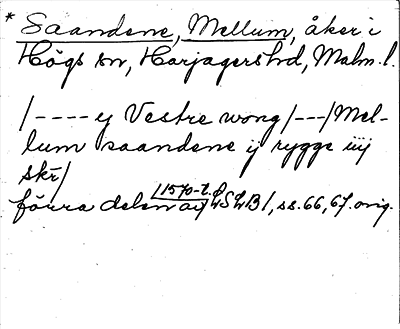 * Saandene, Mellum, åker i
Högs sn, Harjagers hd, Malm.l.
/---- ej Vestre wong/---/Mel-
lum saandene ij rygge iiij
skr/
förra delen av 1570-t. LSLB 1, ss. 66, 67. orig.